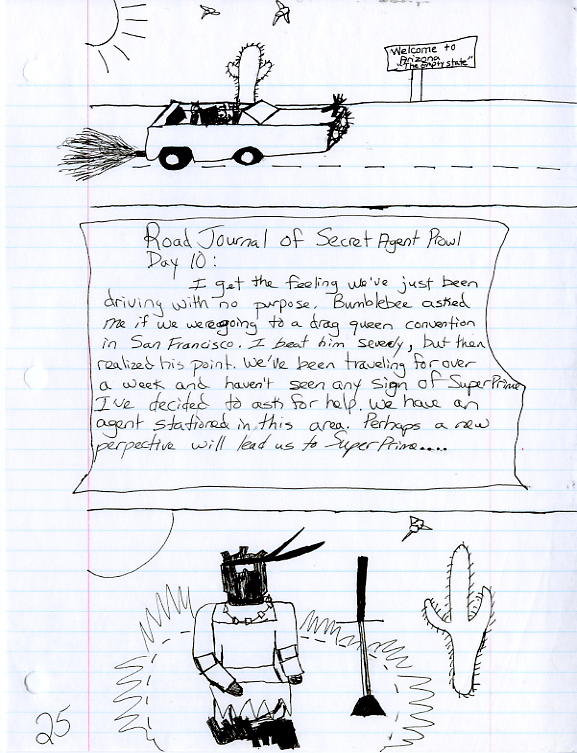 Welcome to
Arizona
"The empty state"
Road Journal of Secret Agent Prowl
Day 10:
I get the feeling we've just been
driving with no purpose. Bumblebee asked
me if we were going to a drag queen convention
in San Francisco. I beat him severly, but then
realized his point. We've been traveling for over
a week and haven't seen any sign of SuperPrime
I've decided to ask for help. We have an
agent stationed in this area. Perhaps a new
perpective will lead us to SuperPrime....
25